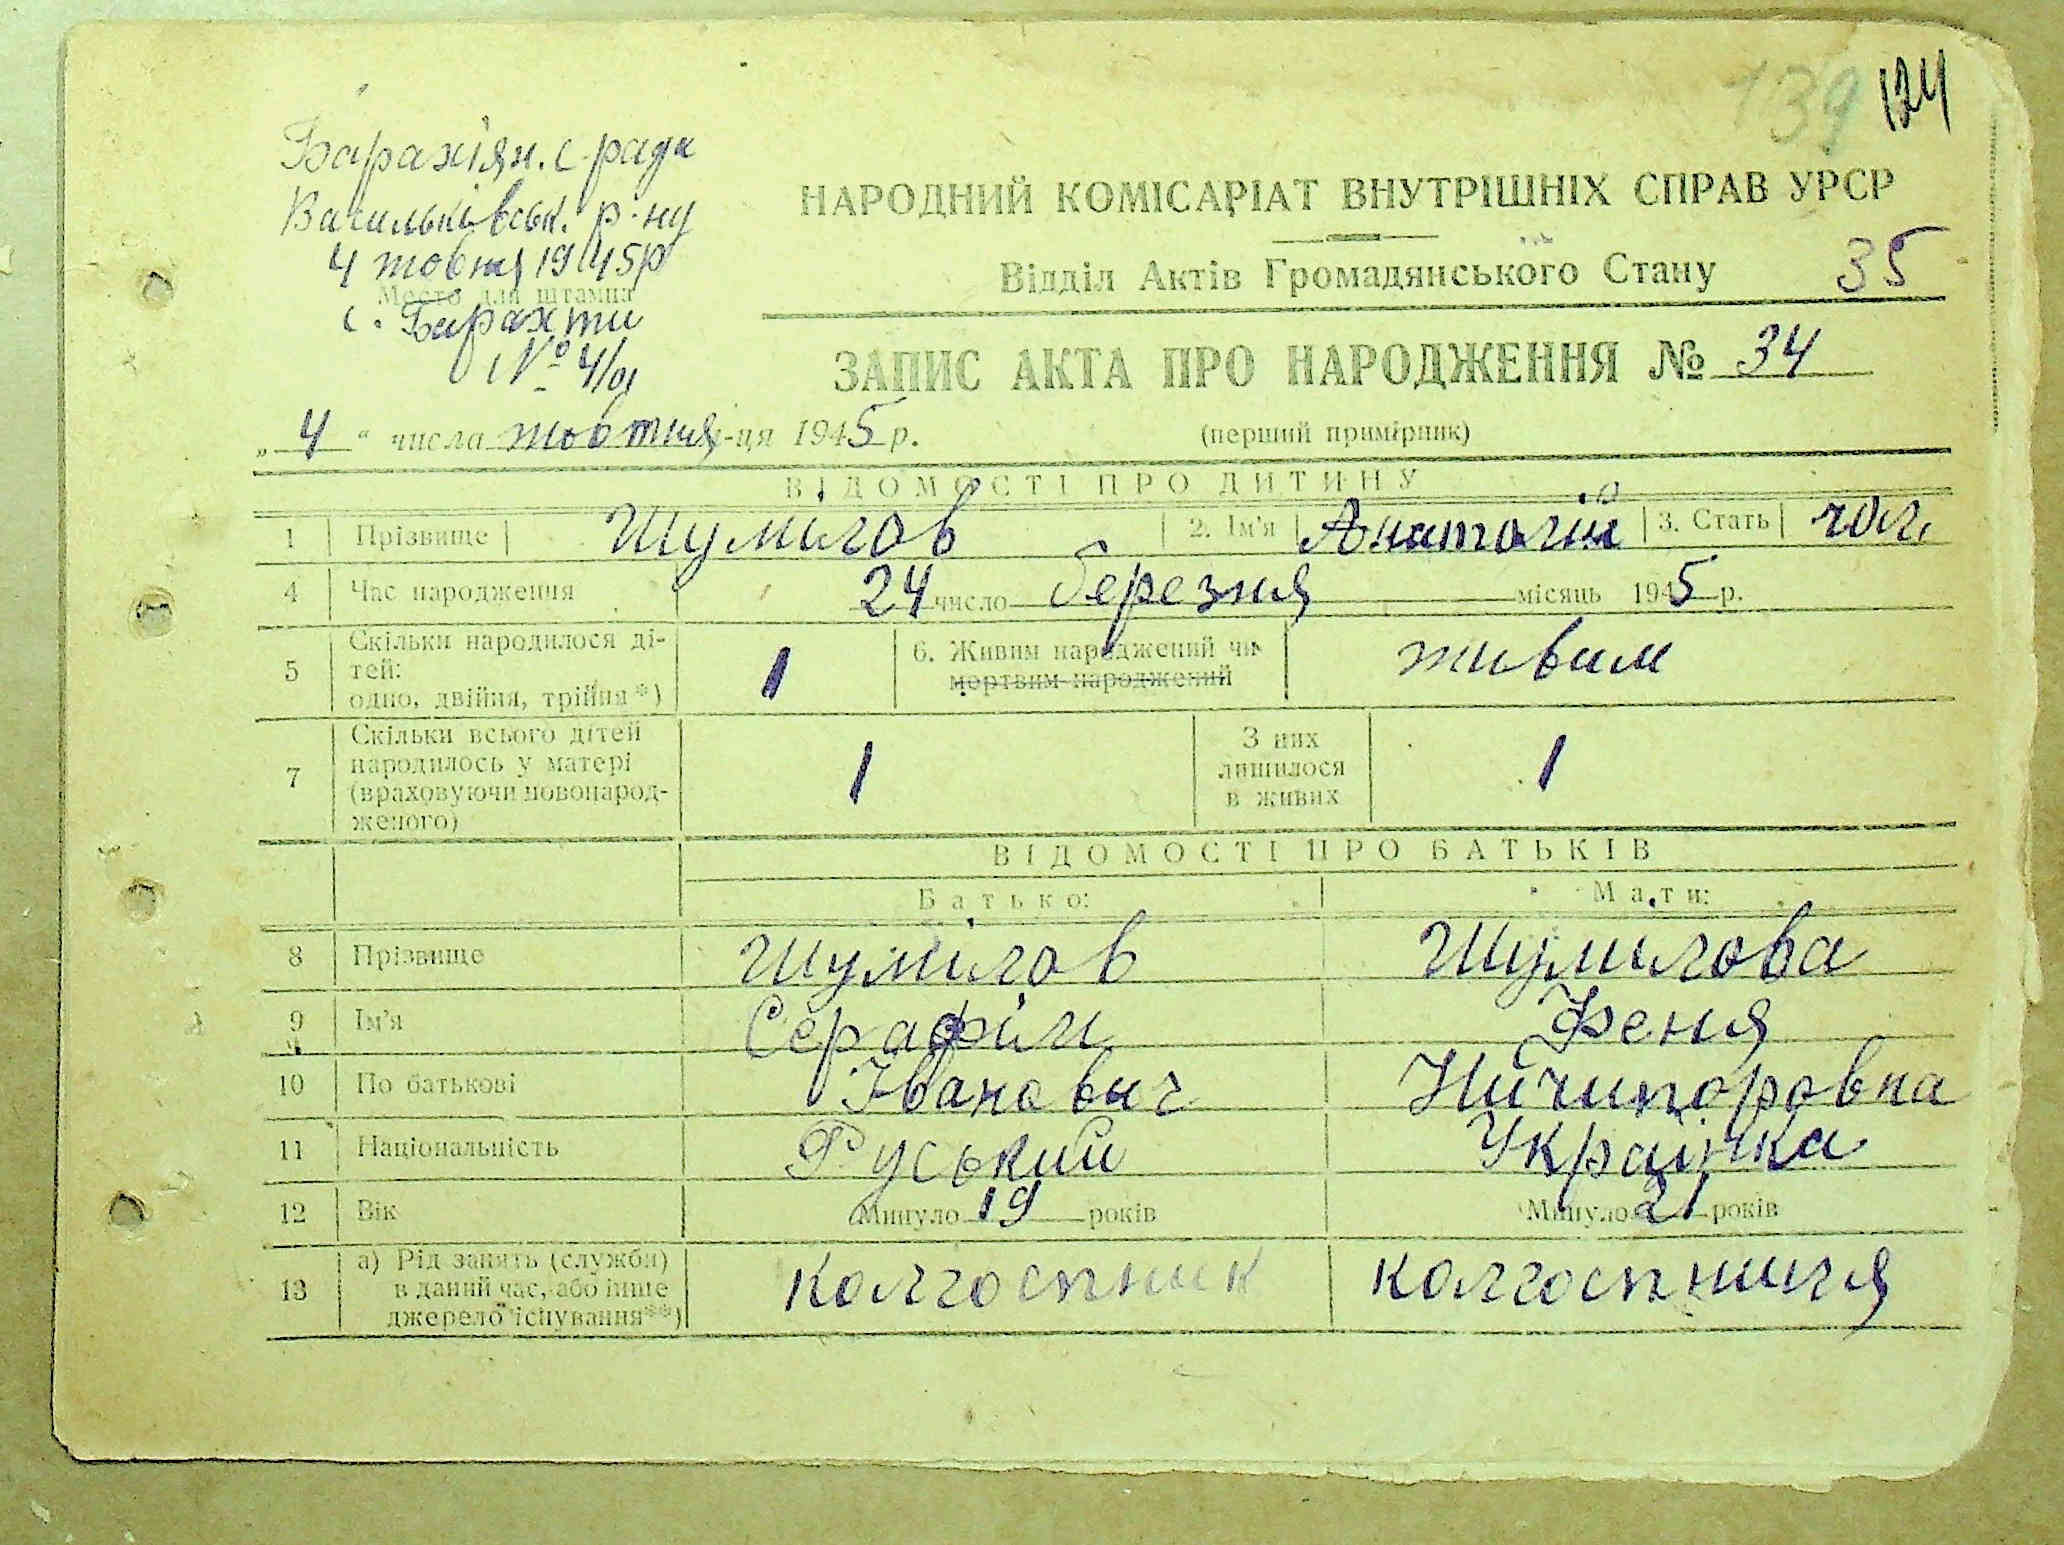 139 124
Барахтян. с. рада
Васильківськ. р-ну
4 жовтня 1945р
Место для штампа
с. Барахти
№ 4/01
НАРОДНИЙ КОМІСАРІАТ ВНУТРІШНІХ СПРАВ УРСР
Відділ Актів Громадянського Стану 35
ЗАПИС АКТА ПРО НАРОДЖЕННЯ № 34
„ 4 “ числа жовтня м-ця 1945 р. (перший примірник)
ВІДОМОСТІ ПРО ДИТИНУ
1 Прізвище Шумілов 2. Ім'я Анатолій 3. Стать чол.
4 Час народження 24 число березня місяць 1945 р.
5 Скільки народилося ді-
тей:
одно, двійня, трійня*) 1 6. Живим народжений чи
мертвим народжений живим
7 Скільки всього дітей
народилось у матері
(враховуючи новонарод-
женого) 1 З них
лишилося
в живих 1
ВІДОМОСТІ ПРО БАТЬКІВ
Батько: Мати:
8 Прізвище Шумілов Шумилова
9 Ім'я Серафім Феня
10 По батькові Іванович Ничипоровна
11 Національність Руський Українка
12 Вік Минуло 19 років Минуло 21 років
13 а) Рід занять (служби)
в даний час, або інше
джерело існування**) колгоспник колгоспниця